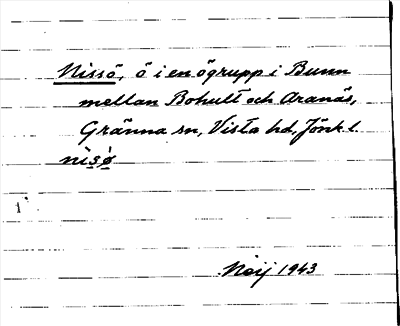 Nissö, ö i en ögrupp i Bunn
mellan Bohult och Aranäs,
Gränna sn, Vista hd, Jönk l.
nìsø̀
Noij 1943